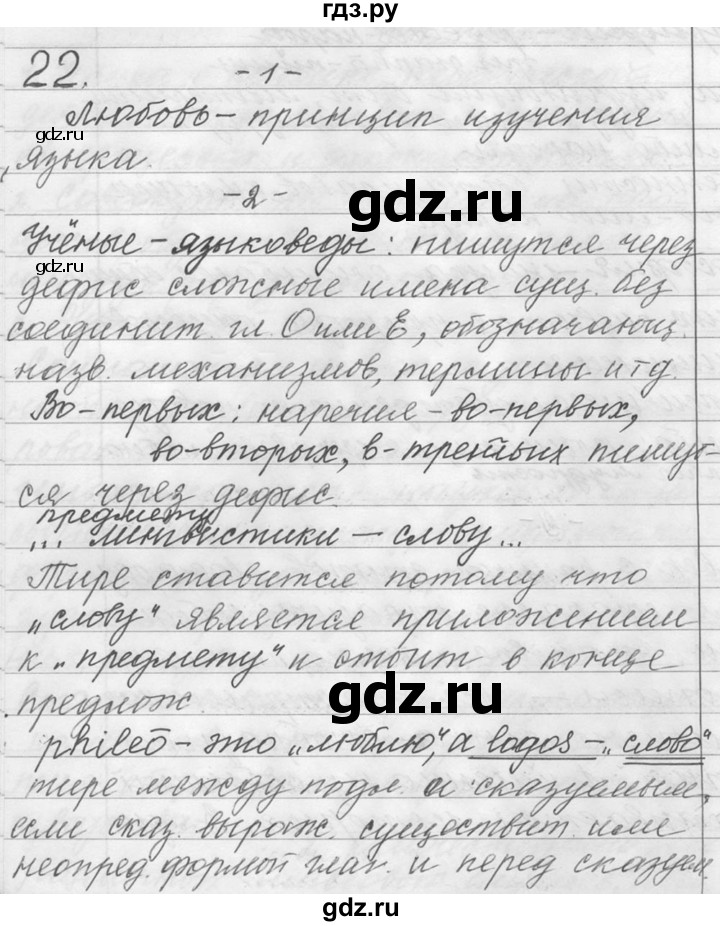 гдз.ру
22. -1-
Любовь - принцип изучения
языка.
-2-
Учёные - языковеды: пишутся через
дефис сложные имена сущ. без
соединит. гл. О или Е, обозначающ.
назв. механизмов, термины и тд.
Во-первых: наречия - во-первых,
во-вторых, в-третьих пишут-
ся через дефис.
предмету
... лингвистики - слову...
Тире ставится потому что
„слову" является приложением
к „предмету" и стоит в конце
предлож.
phileō - это „люблю", а logos - „слово"
тире между подл. и сказуемым,
если сказ. выраж. существит. или
неопред. формой глаг. и перед сказуем.
gdz.ru
gdz.ru
gdz.ru
gdz.ru
gdz.ru
gdz.ru
gdz.ru
gdz.ru
gdz.ru